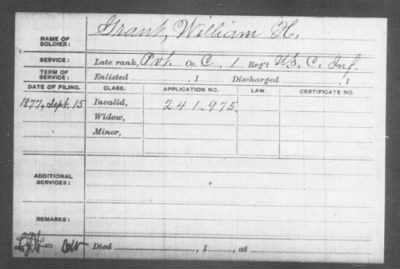 NAME OF SOLDIER: Grant, William H.
SERVICE: Late rank, Pvt. Co. C, 1 Reg't U.S.C. Inf.
TERM OF SERVICE: Enlisted , 1 Discharged , 1
DATE OF FILING. CLASS. APPLICATION NO. LAW. CERTIFICATE NO.
1877, Sept. 15 Invalid, 241.975.
Widow,
Minor,
ADDITIONAL SERVICES:
REMARKS:
Died , 1 , at